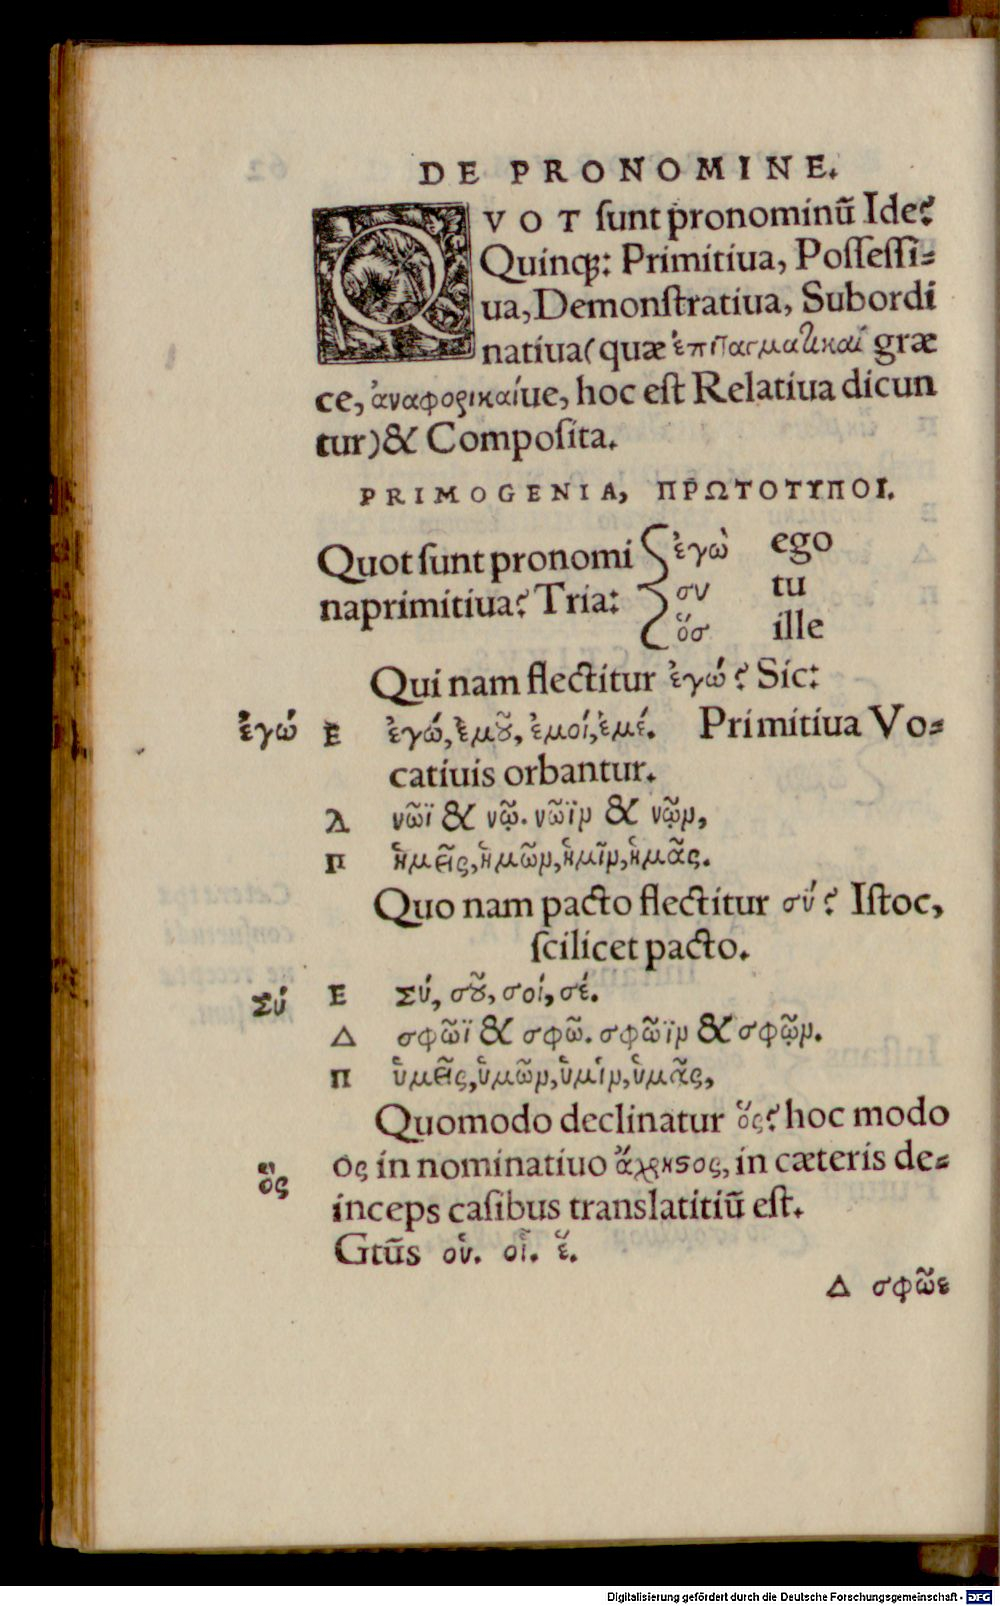 DE PRONOMINE.
QVOT ſunt pronominū Ideę?
Quinqꝫ: Primitiua, Poſſeſſi=
ua, Demonſtratiua, Subordi
natiua( quæ ἐπιταγματικαί græ
ce, ἀναφορικαί ue, hoc eſt Relatiua dicun
tur) & Compoſita.
PRIMOGENIA, ΠΡΩΤΟΤΥΠΟΙ.
Quot ſunt pronomi
naprimitiua? Tria:
ἐγὼ ego
συ tu
ὅσ ille
Qui nam flectitur ἐγώ? Sic:
ἐγώ Ε ἐγώ, ἐμοῦ, ἐμοί, ἐμέ. Primitiua Vo=
catiuis orbantur.
Δ νῶϊ & νῷ. νῶϊν & νῷν,
Π ἡμεῖς, ἡμῶν, ἡμῖν, ἡμᾶς.
Quo nam pacto flectitur σύ? Iſtoc,
ſcilicet pacto.
Σύ Ε Σύ, σοῦ, σοί, σέ.
Δ σφῶϊ & σφῶ. σφῶϊν & σφῷν.
Π ὑμεῖς, ὑμῶν, ὑμίν, ὑμᾶς,
Quomodo declinatur ὅς? hoc modo
ὅς ος in nominatiuo ἄχρηστος, in cæteris de=
inceps caſibus translatitiū eſt.
Gtūs οὑ. οἷ. ἕ.
Δ σφῶε
Digitalisierung gefördert durch die Deutsche Forschungsgemeinschaft - DFG